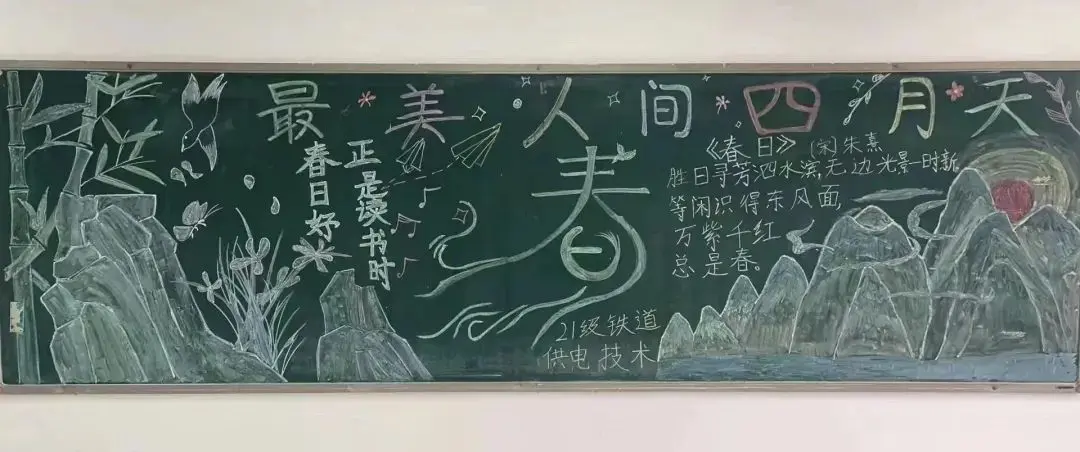 最美人间四月天
春日好
正是读书时
春
《春日》 (宋)朱熹
胜日寻芳泗水滨,无边光景一时新,
等闲识得东风面,
万紫千红
总是春。
21级铁道
供电技术